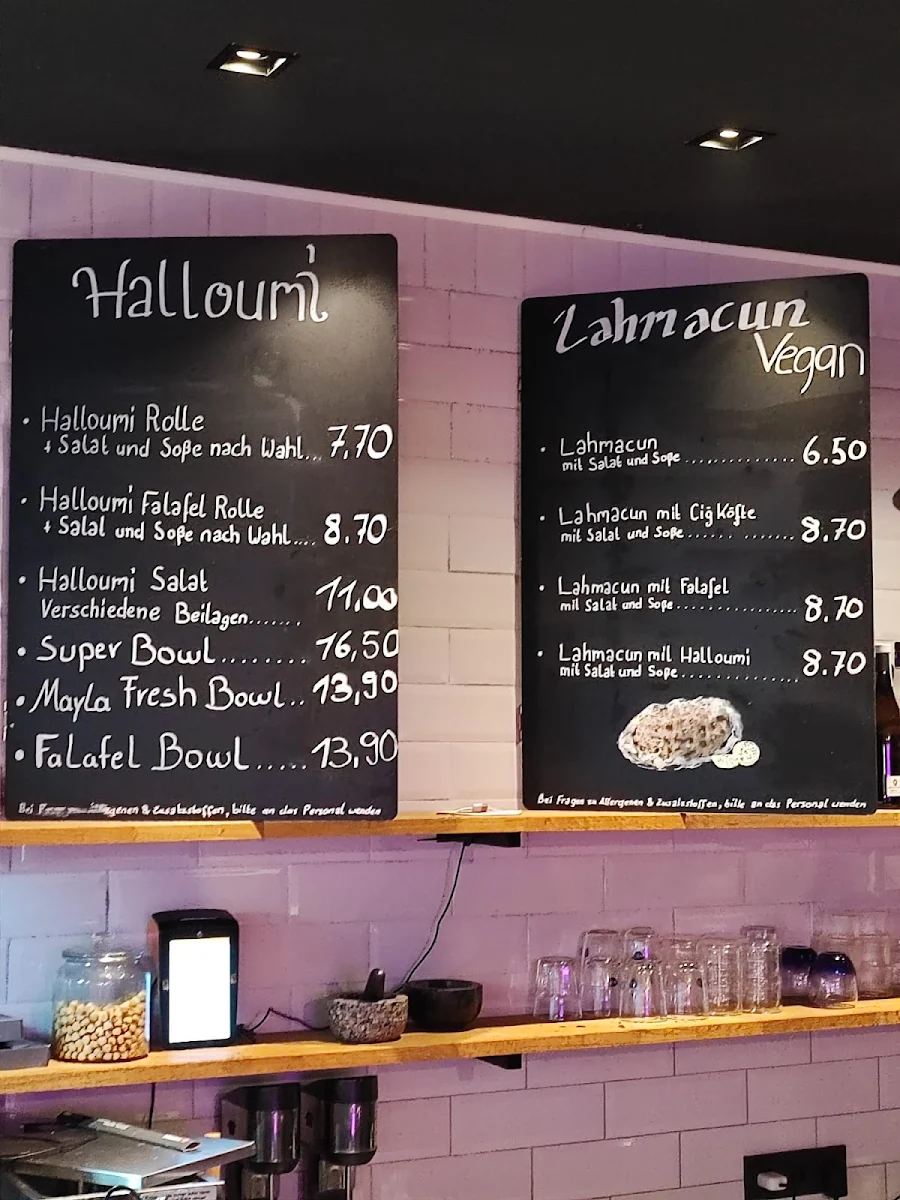 Halloumi
• Halloumi Rolle
+ Salat und Soße nach Wahl... 7,70
• Halloumi Falafel Rolle
+ Salat und Soße nach Wahl.... 8.70
• Halloumi Salat
Verschiedene Beilagen....... 11,00
• Super Bowl........ 16,50
• Mayla Fresh Bowl.. 13,90
• Falafel Bowl..... 13,90
Bei & Zusatzstoffen, bitte an das Personal wenden
Lahmacun
Vegan
• Lahmacun
mit Salat und Soße ............ 6.50
• Lahmacun mit Cig Köfte
mit Salat und Soße ...... ....... 8.70
• Lahmacun mit Falafel
mit Salat und Soße ............... 8.70
• Lahmacun mit Halloumi
mit Salat und Soße ............... 8.70
Bei Fragen zu Allergenen & Zusatzstoffen, bitte an das Personal wenden